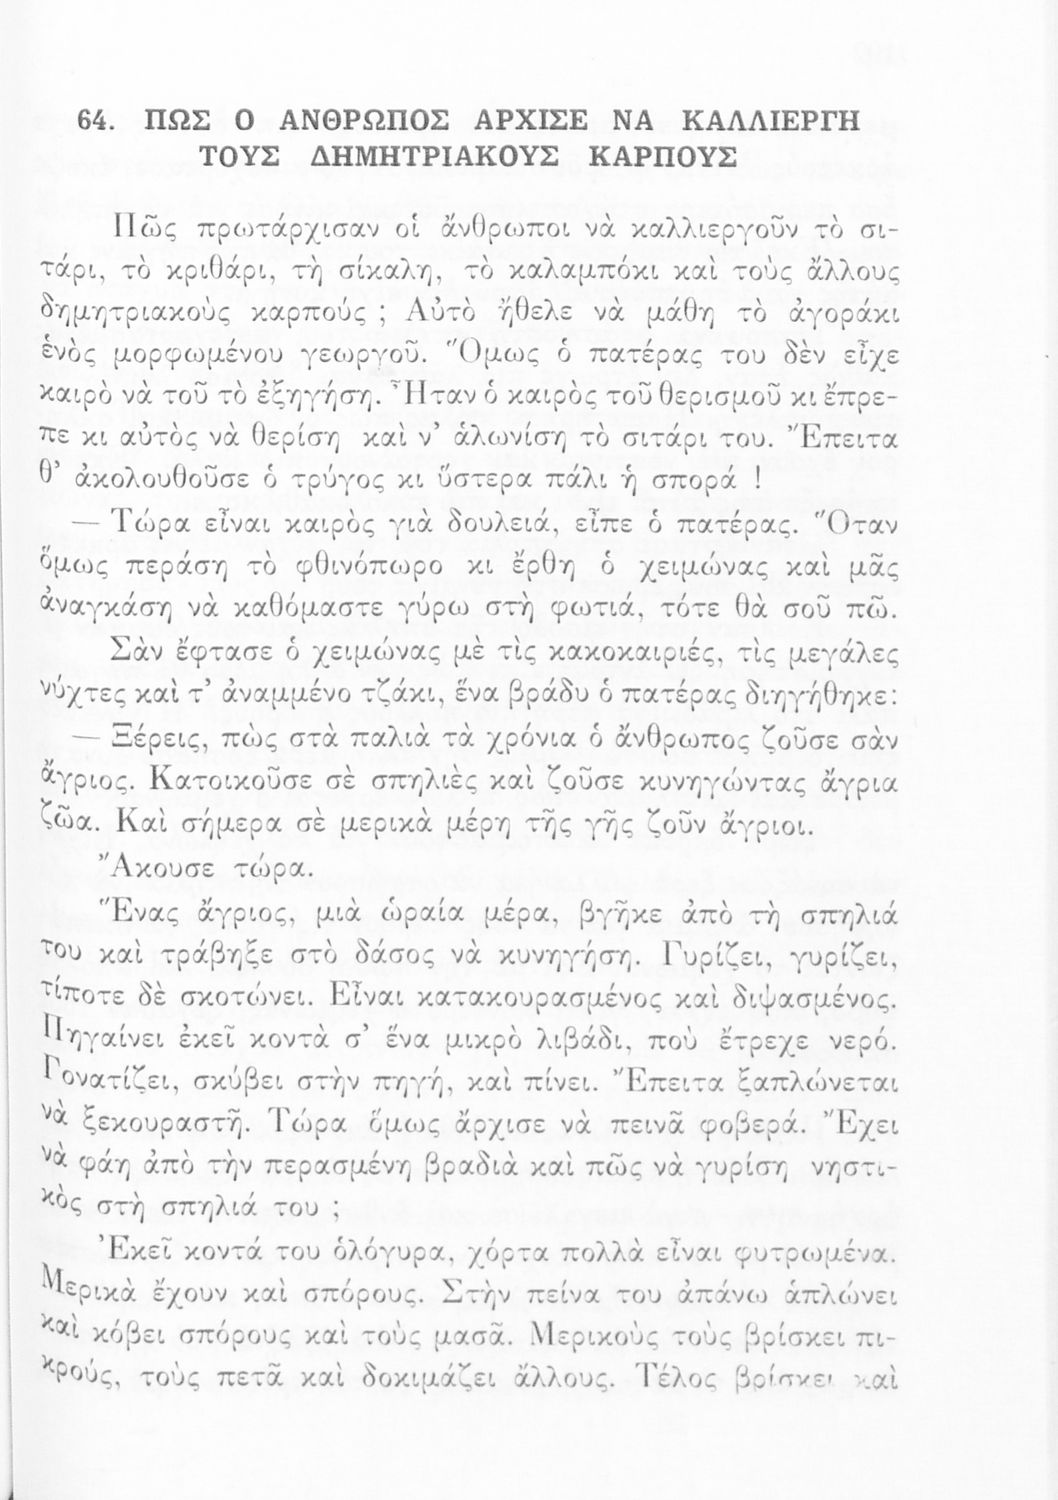 64. ΠΩΣ Ο ΑΝΘΡΩΠΟΣ ΑΡΧΙΣΕ ΝΑ ΚΑΛΛΙΕΡΓΗ
ΤΟΥΣ ΔΗΜΗΤΡΙΑΚΟΥΣ ΚΑΡΠΟΥΣ
Πῶς πρωτάρχισαν οἱ ἄνθρωποι νὰ καλλιεργοῦν τὸ σι-
τάρι, τὸ κριθάρι, τὴ σίκαλη, τὸ καλαμπόκι καὶ τοὺς ἄλλους
δημητριακοὺς καρπούς ; Αὐτὸ ἤθελε νὰ μάθη τὸ ἀγοράκι
ἑνὸς μορφωμένου γεωργοῦ. Ὅμως ὁ πατέρας του δὲν εἶχε
καιρὸ νὰ τοῦ τὸ ἐξηγήση. Ἦταν ὁ καιρὸς τοῦ θερισμοῦ κι ἔπρε-
πε κι αὐτὸς νὰ θερίση καὶ ν’ ἁλωνίση τὸ σιτάρι του. Ἔπειτα
θ’ ἀκολουθοῦσε ὁ τρύγος κι ὕστερα πάλι ἡ σπορά !
— Τώρα εἶναι καιρὸς γιὰ δουλειά, εἶπε ὁ πατέρας. Ὅταν
ὅμως περάση τὸ φθινόπωρο κι ἔρθη ὁ χειμώνας καὶ μᾶς
ἀναγκάση νὰ καθόμαστε γύρω στὴ φωτιά, τότε θὰ σοῦ πῶ.
Σὰν ἔφτασε ὁ χειμώνας μὲ τὶς κακοκαιριές, τὶς μεγάλες
νύχτες καὶ τ’ ἀναμμένο τζάκι, ἕνα βράδυ ὁ πατέρας διηγήθηκε:
— Ξέρεις, πὼς στὰ παλιὰ τὰ χρόνια ὁ ἄνθρωπος ζοῦσε σὰν
ἄγριος. Κατοικοῦσε σὲ σπηλιὲς καὶ ζοῦσε κυνηγώντας ἄγρια
ζῶα. Καὶ σήμερα σὲ μερικὰ μέρη τῆς γῆς ζοῦν ἄγριοι.
Ἄκουσε τώρα.
Ἕνας ἄγριος, μιὰ ὡραία μέρα, βγῆκε ἀπὸ τὴ σπηλιά
του καὶ τράβηξε στὸ δάσος νὰ κυνηγήση. Γυρίζει, γυρίζει,
τίποτε δὲ σκοτώνει. Εἶναι κατακουρασμένος καὶ διψασμένος.
Πηγαίνει ἐκεῖ κοντὰ σ’ ἕνα μικρὸ λιβάδι, ποὺ ἔτρεχε νερό.
Γονατίζει, σκύβει στὴν πηγή, καὶ πίνει. Ἔπειτα ξαπλώνεται
νὰ ξεκουραστῆ. Τώρα ὅμως ἄρχισε νὰ πεινᾶ φοβερά. Ἔχει
νὰ φάη ἀπὸ τὴν περασμένη βραδιὰ καὶ πῶς νὰ γυρίση νηστι-
κὸς στὴ σπηλιά του ;
Ἐκεῖ κοντά του ὁλόγυρα, χόρτα πολλὰ εἶναι φυτρωμένα.
Μερικὰ ἔχουν καὶ σπόρους. Στὴν πείνα του ἀπάνω ἁπλώνει
καὶ κόβει σπόρους καὶ τοὺς μασᾶ. Μερικοὺς τοὺς βρίσκει πι-
κρούς, τοὺς πετᾶ καὶ δοκιμάζει ἄλλους. Τέλος βρίσκει καὶ